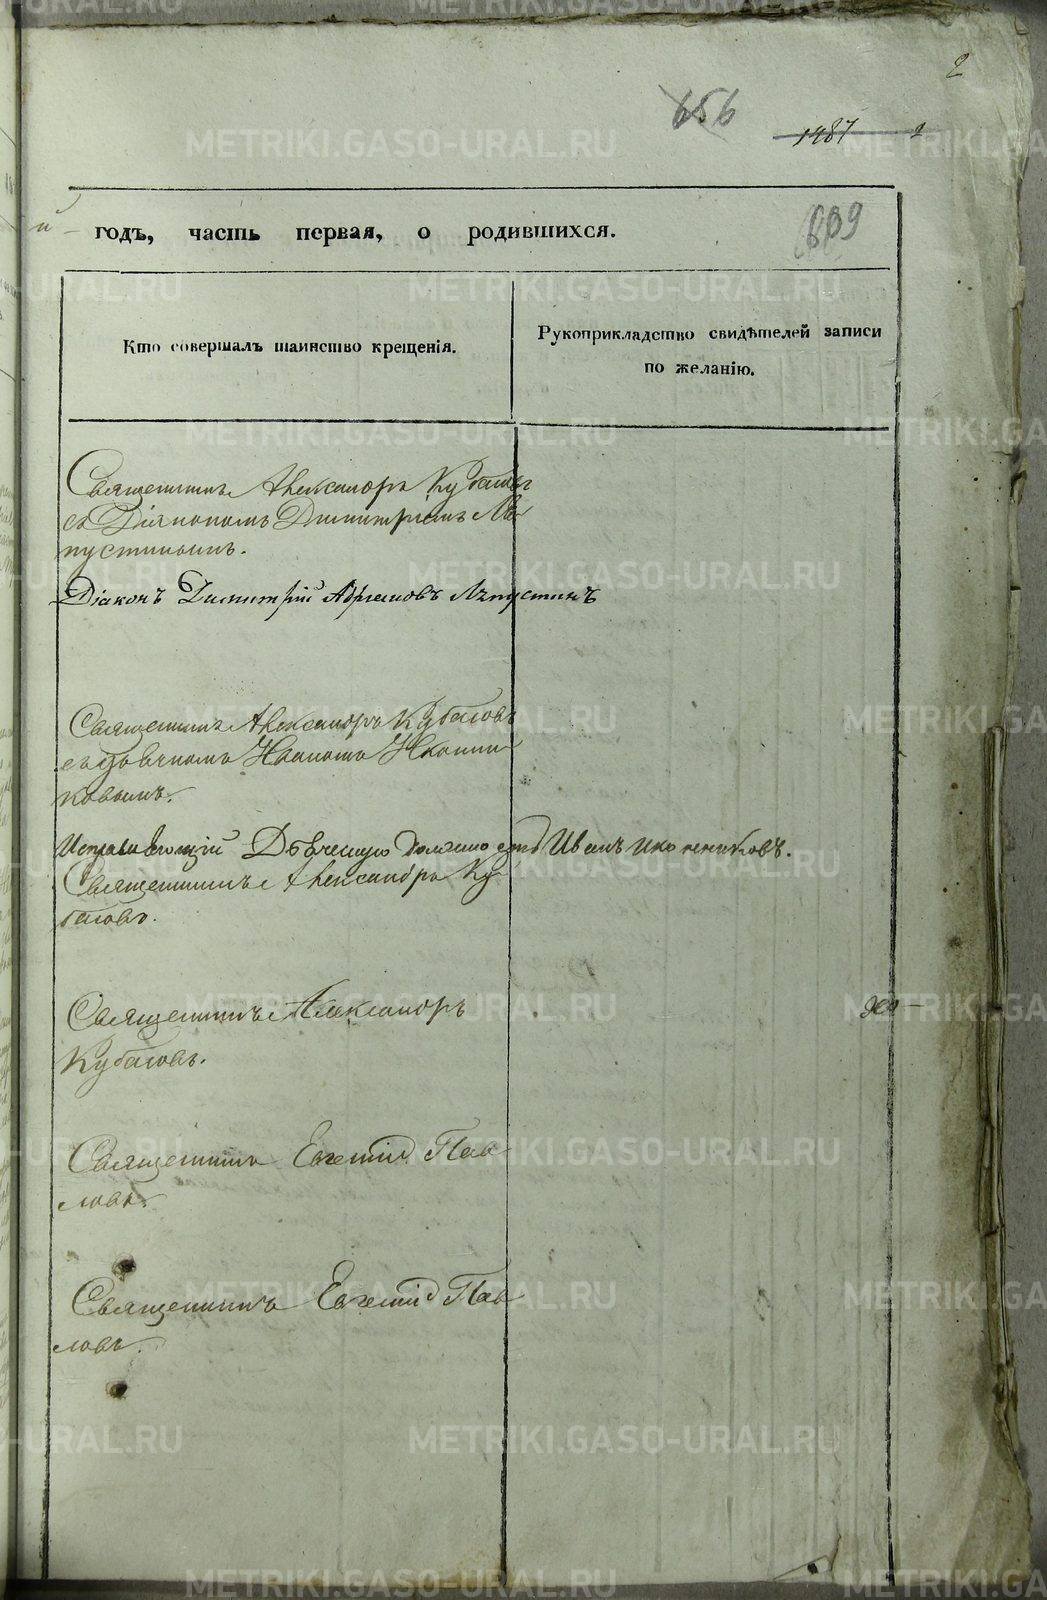 2
656
1487 2
й
годъ, часть первая, о родившихся.
Кто совершалъ таинство крещенія.
Рукоприкладство свидѣтелей записи
по желанію.
Священникъ Александръ Кубасовъ
съ Діакономъ Димитріемъ Ля-
пустинымъ.
Діаконъ Димитрій Адріановъ Ляпустинъ
Священникъ Александръ Кубасовъ
съ дьячкомъ Иваномъ Иконни-
ковымъ.
Исправляющій Дьячешую должность Иванъ Иконниковъ.
Священникъ Александръ Ку-
басовъ.
Священникъ Александръ
Кубасовъ.
Священникъ Евгеній Пав-
ловъ.
Священникъ Евгеній Пав-
ловъ.
METRIKI.GASO-URAL.RU